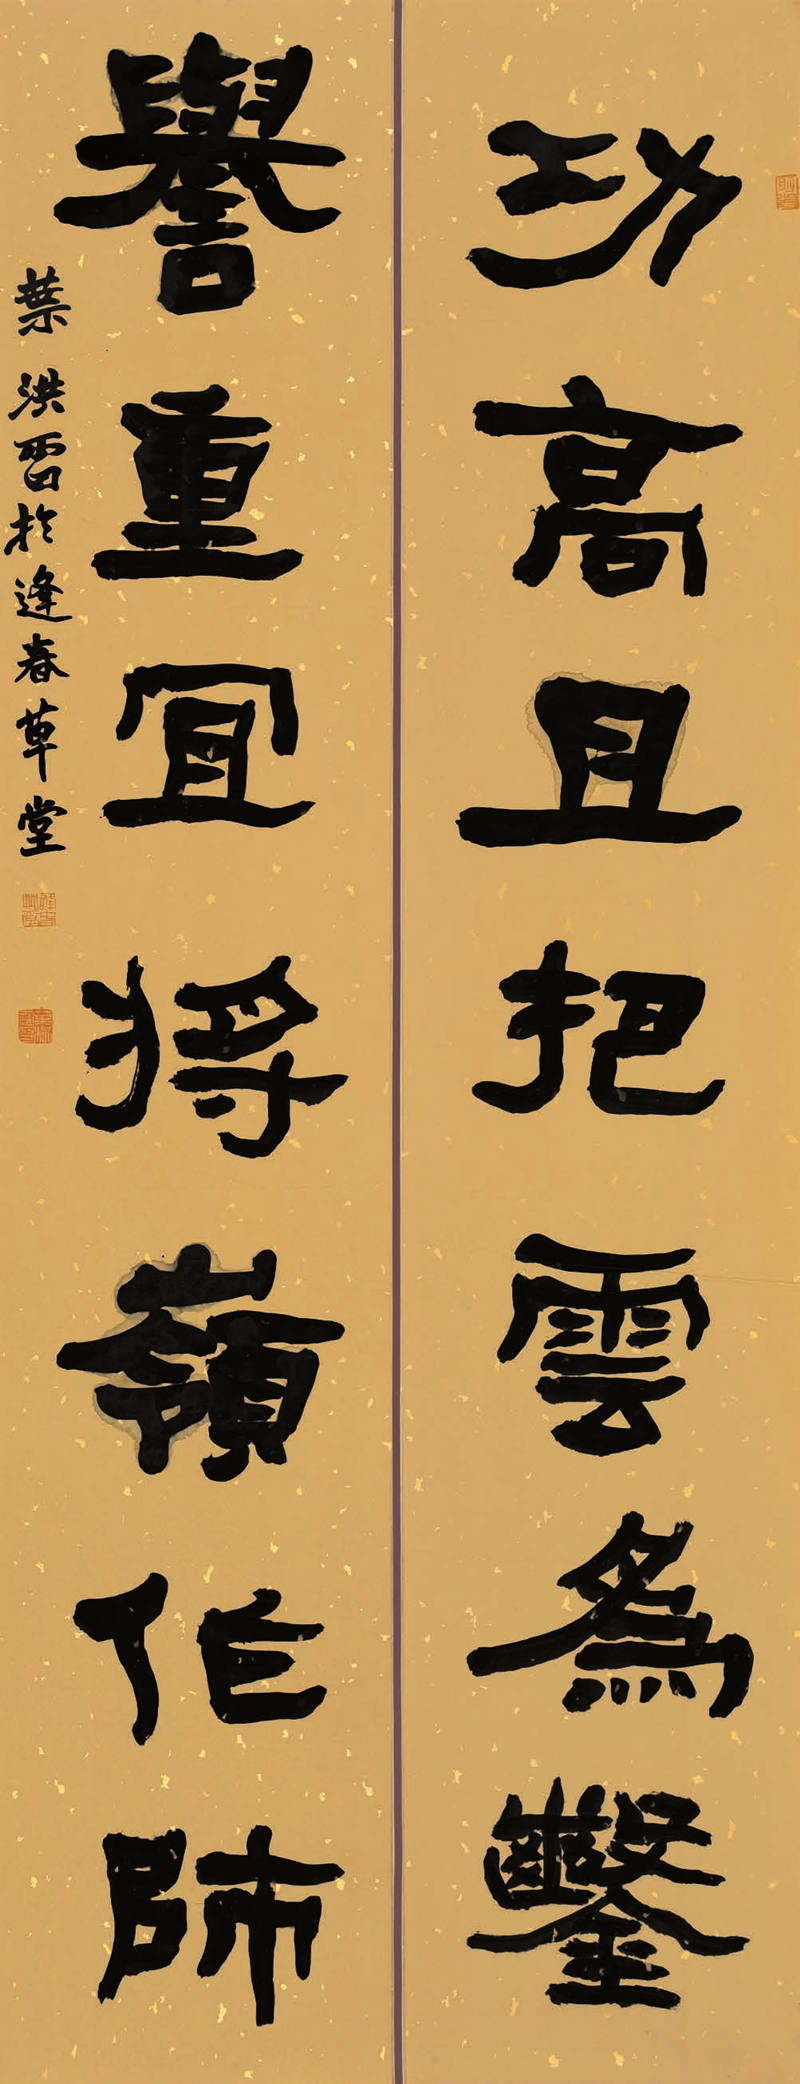 功高且把雲為鑿
譽重冝將嶺作師
葉洪雷於逢春草堂